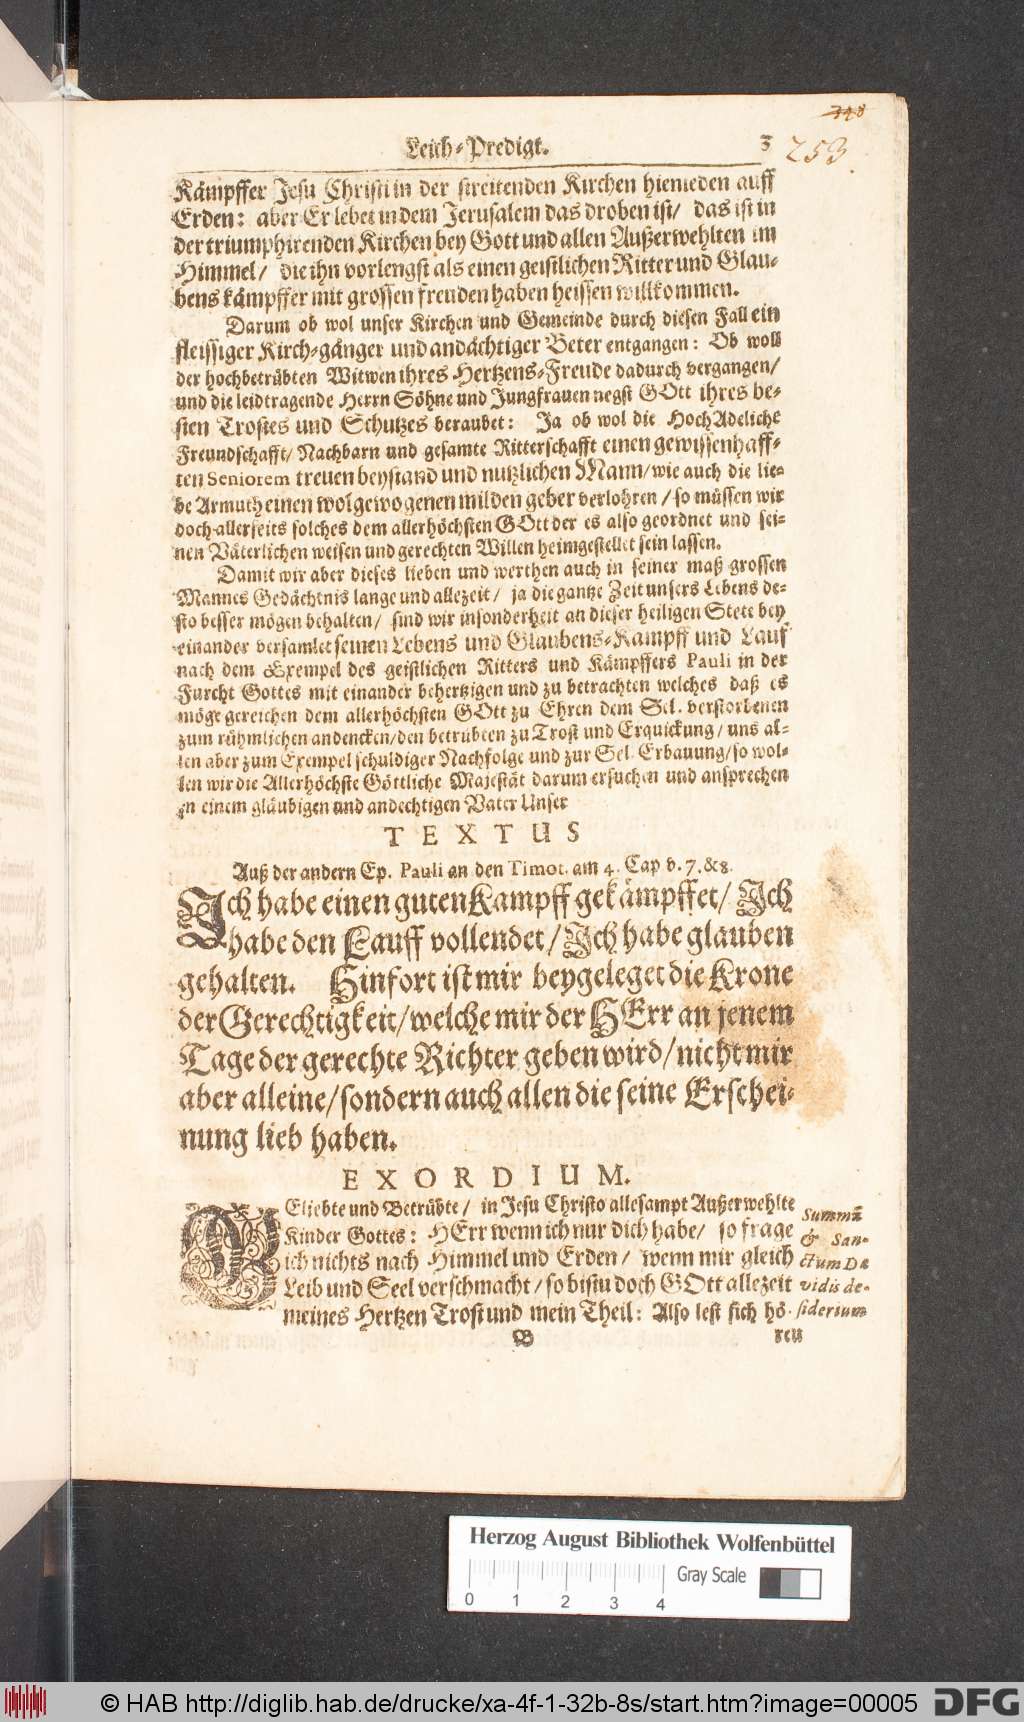 348
Leich-Predigt. 3
253
Kämpffer Jesu Christi in der streitenden Kirchen hienieden auff
Erden: aber Er lebet in dem Jerusalem das droben ist/ das ist in
der triumphirenden Kirchen bey Gott und allen Außerwehlten im
Himmel/ die ihn vorlengst als einen geistlichen Ritter und Glau-
bens kämpffer mit grossen freuden haben heissen willkommen.
Darum ob wol unser Kirchen und Gemeinde durch diesen Fall ein
fleissiger Kirch-gänger und andächtiger Beter entgangen: Ob woll
der hochbetrübten Witwen ihres Hertzens-Freude dadurch vergangen/
und die leidtragende Herrn Söhne und Jungfrauen negst GOtt ihres be-
sten Trostes und Schutzes beraubet: Ja ob wol die HochAdeliche
Freundschafft/ Nachbarn und gesamte Ritterschafft einen gewissenhaff-
ten Seniorem treuen beystand und nutzlichen Mann/ wie auch die lie-
be Armuth einen wolgewogenen milden geber verlohren/ so müssen wir
doch allerseits solches dem allerhöchsten GOtt der es also geordnet und sei-
nen Väterlichen weisen und gerechten Willen heimgestellet sein lassen.
Damit wir aber dieses lieben und werthen auch in seiner maß grossen
Mannes Gedächtnis lange und allezeit/ ja die gantze Zeit unsers Lebens de-
sto besser mögen behalten/ sind wir insonderheit an dieser heiligen Stete bey
einander versamlet seinen Lebens und Glaubens-Kampff und Lauf
nach dem Exempel des geistlichen Ritters und Kämpffers Pauli in der
Furcht Gottes mit einander behertzigen und zu betrachten welches daß es
möge gereichen dem allerhöchsten GOtt zu Ehren dem Sel. verstorbenen
zum rühmlichen andencken/ den betrübten zu Trost und Erquickung/ uns al-
len aber zum Exempel schuldiger Nachfolge und zur Sel. Erbauung/ so wol-
len wir die Allerhöchste Göttliche Majestät darum ersuchen und ansprechen
in einem gläubigen und andechtigen Vater Unser
TEXTUS
Auß der andern Ep. Pauli an den Timot. am 4. Cap v. 7. & 8.
Ich habe einen guten Kampff gekämpffet/ Ich
habe den Lauff vollendet/ Ich habe glauben
gehalten. Hinfort ist mir beygeleget die Krone
der Gerechtigkeit/ welche mir der HErr an jenem
Tage der gerechte Richter geben wird/ nicht mir
aber alleine/ sondern auch allen die seine Erschei-
nung lieb haben.
EXORDIUM.
GEliebte und Betrübte/ in Jesu Christo allesampt Außerwehlte
Kinder Gottes: HErr wenn ich nur dich habe/ so frage
ich nichts nach Himmel und Erden/ wenn mir gleich
Leib und Seel verschmacht/ so bistu doch GOtt allezeit
meines Hertzen Trost und mein Theil: Also lest sich hö-
Summū
& San-
ctum Da
vidis de-
siderium
B ren
Herzog August Bibliothek Wolfenbüttel
Gray Scale
0 1 2 3 4
© HAB http://diglib.hab.de/drucke/xa-4f-1-32b-8s/start.htm?image=00005
DFG